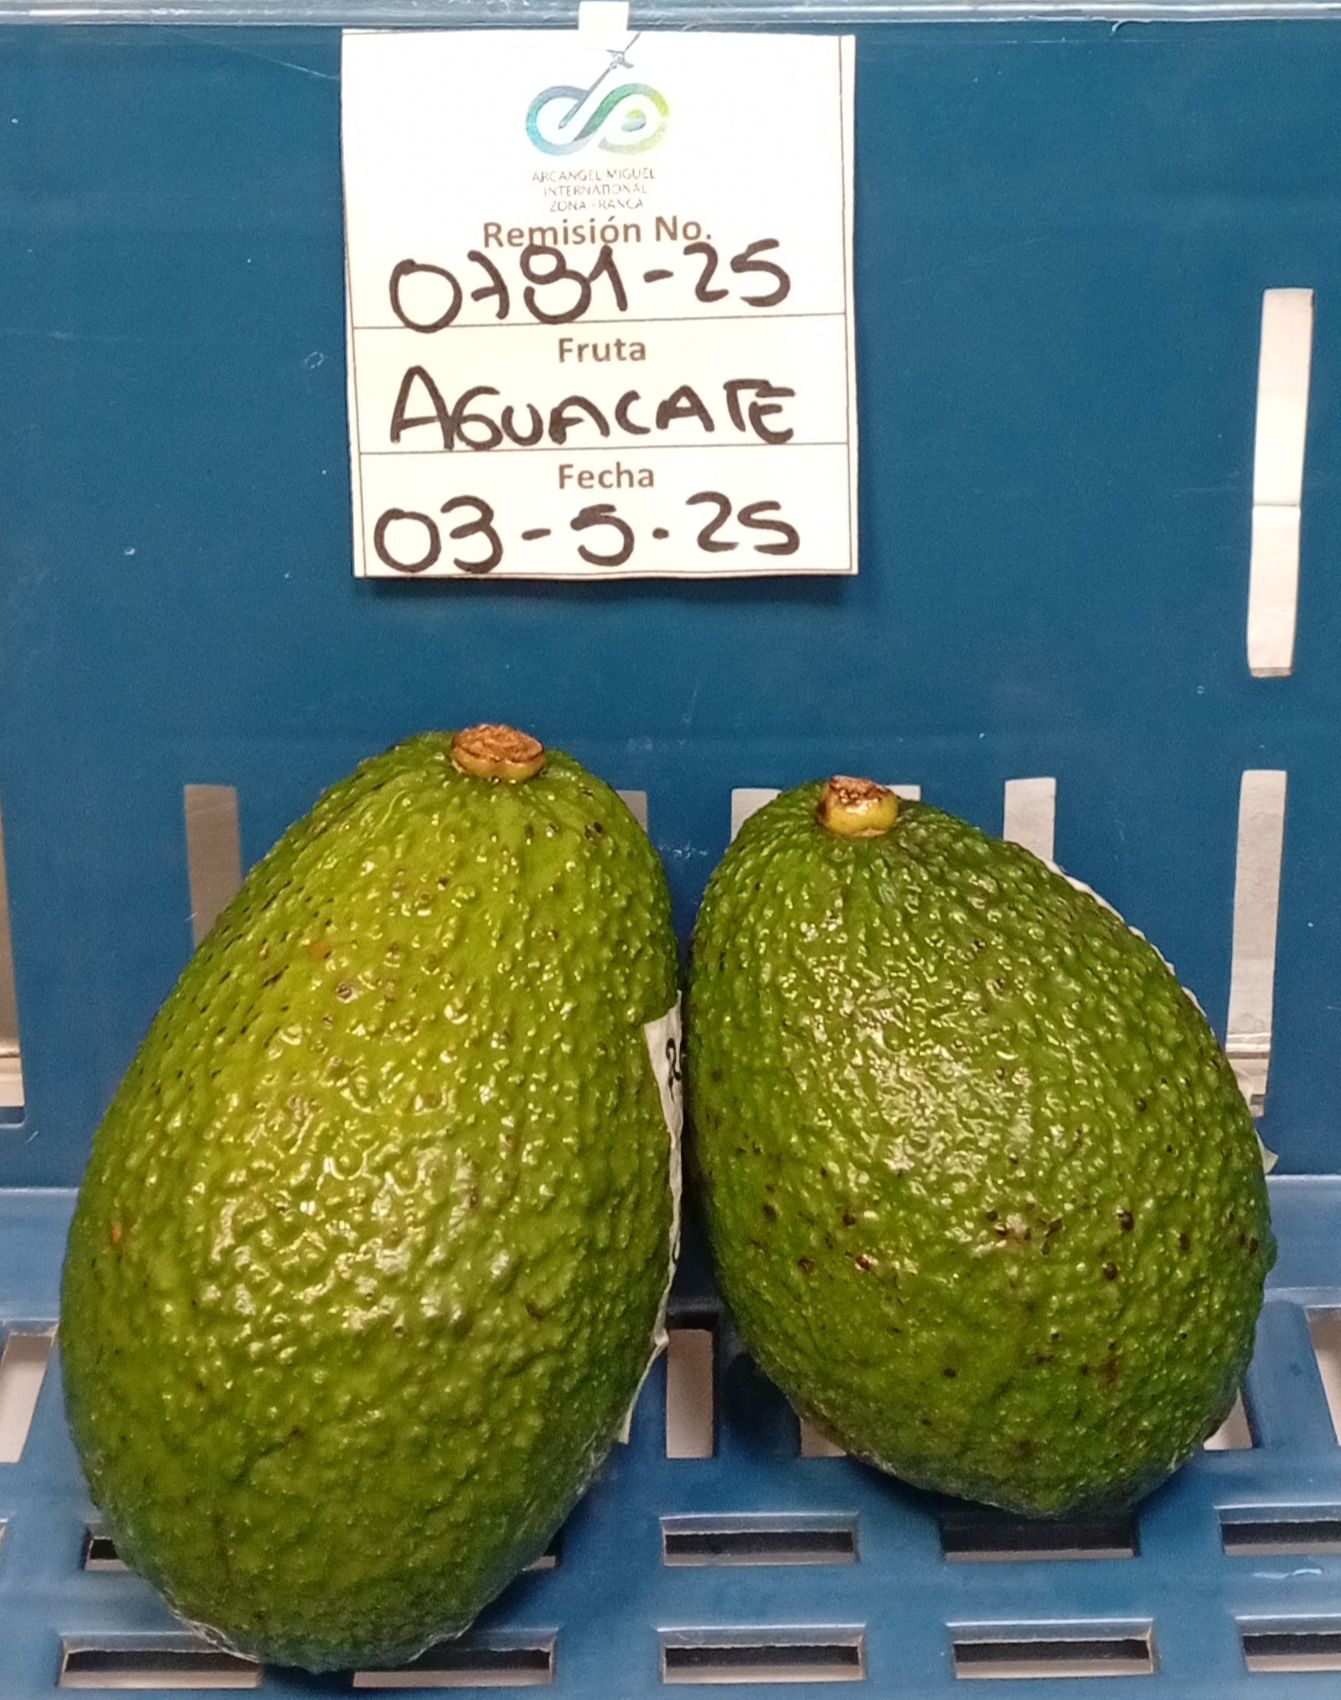 ARCANGEL MIGUEL
INTERNATIONAL
ZONA FRANCA
Remisión No.
0791-25
Fruta
AGUACATE
Fecha
03-5-25